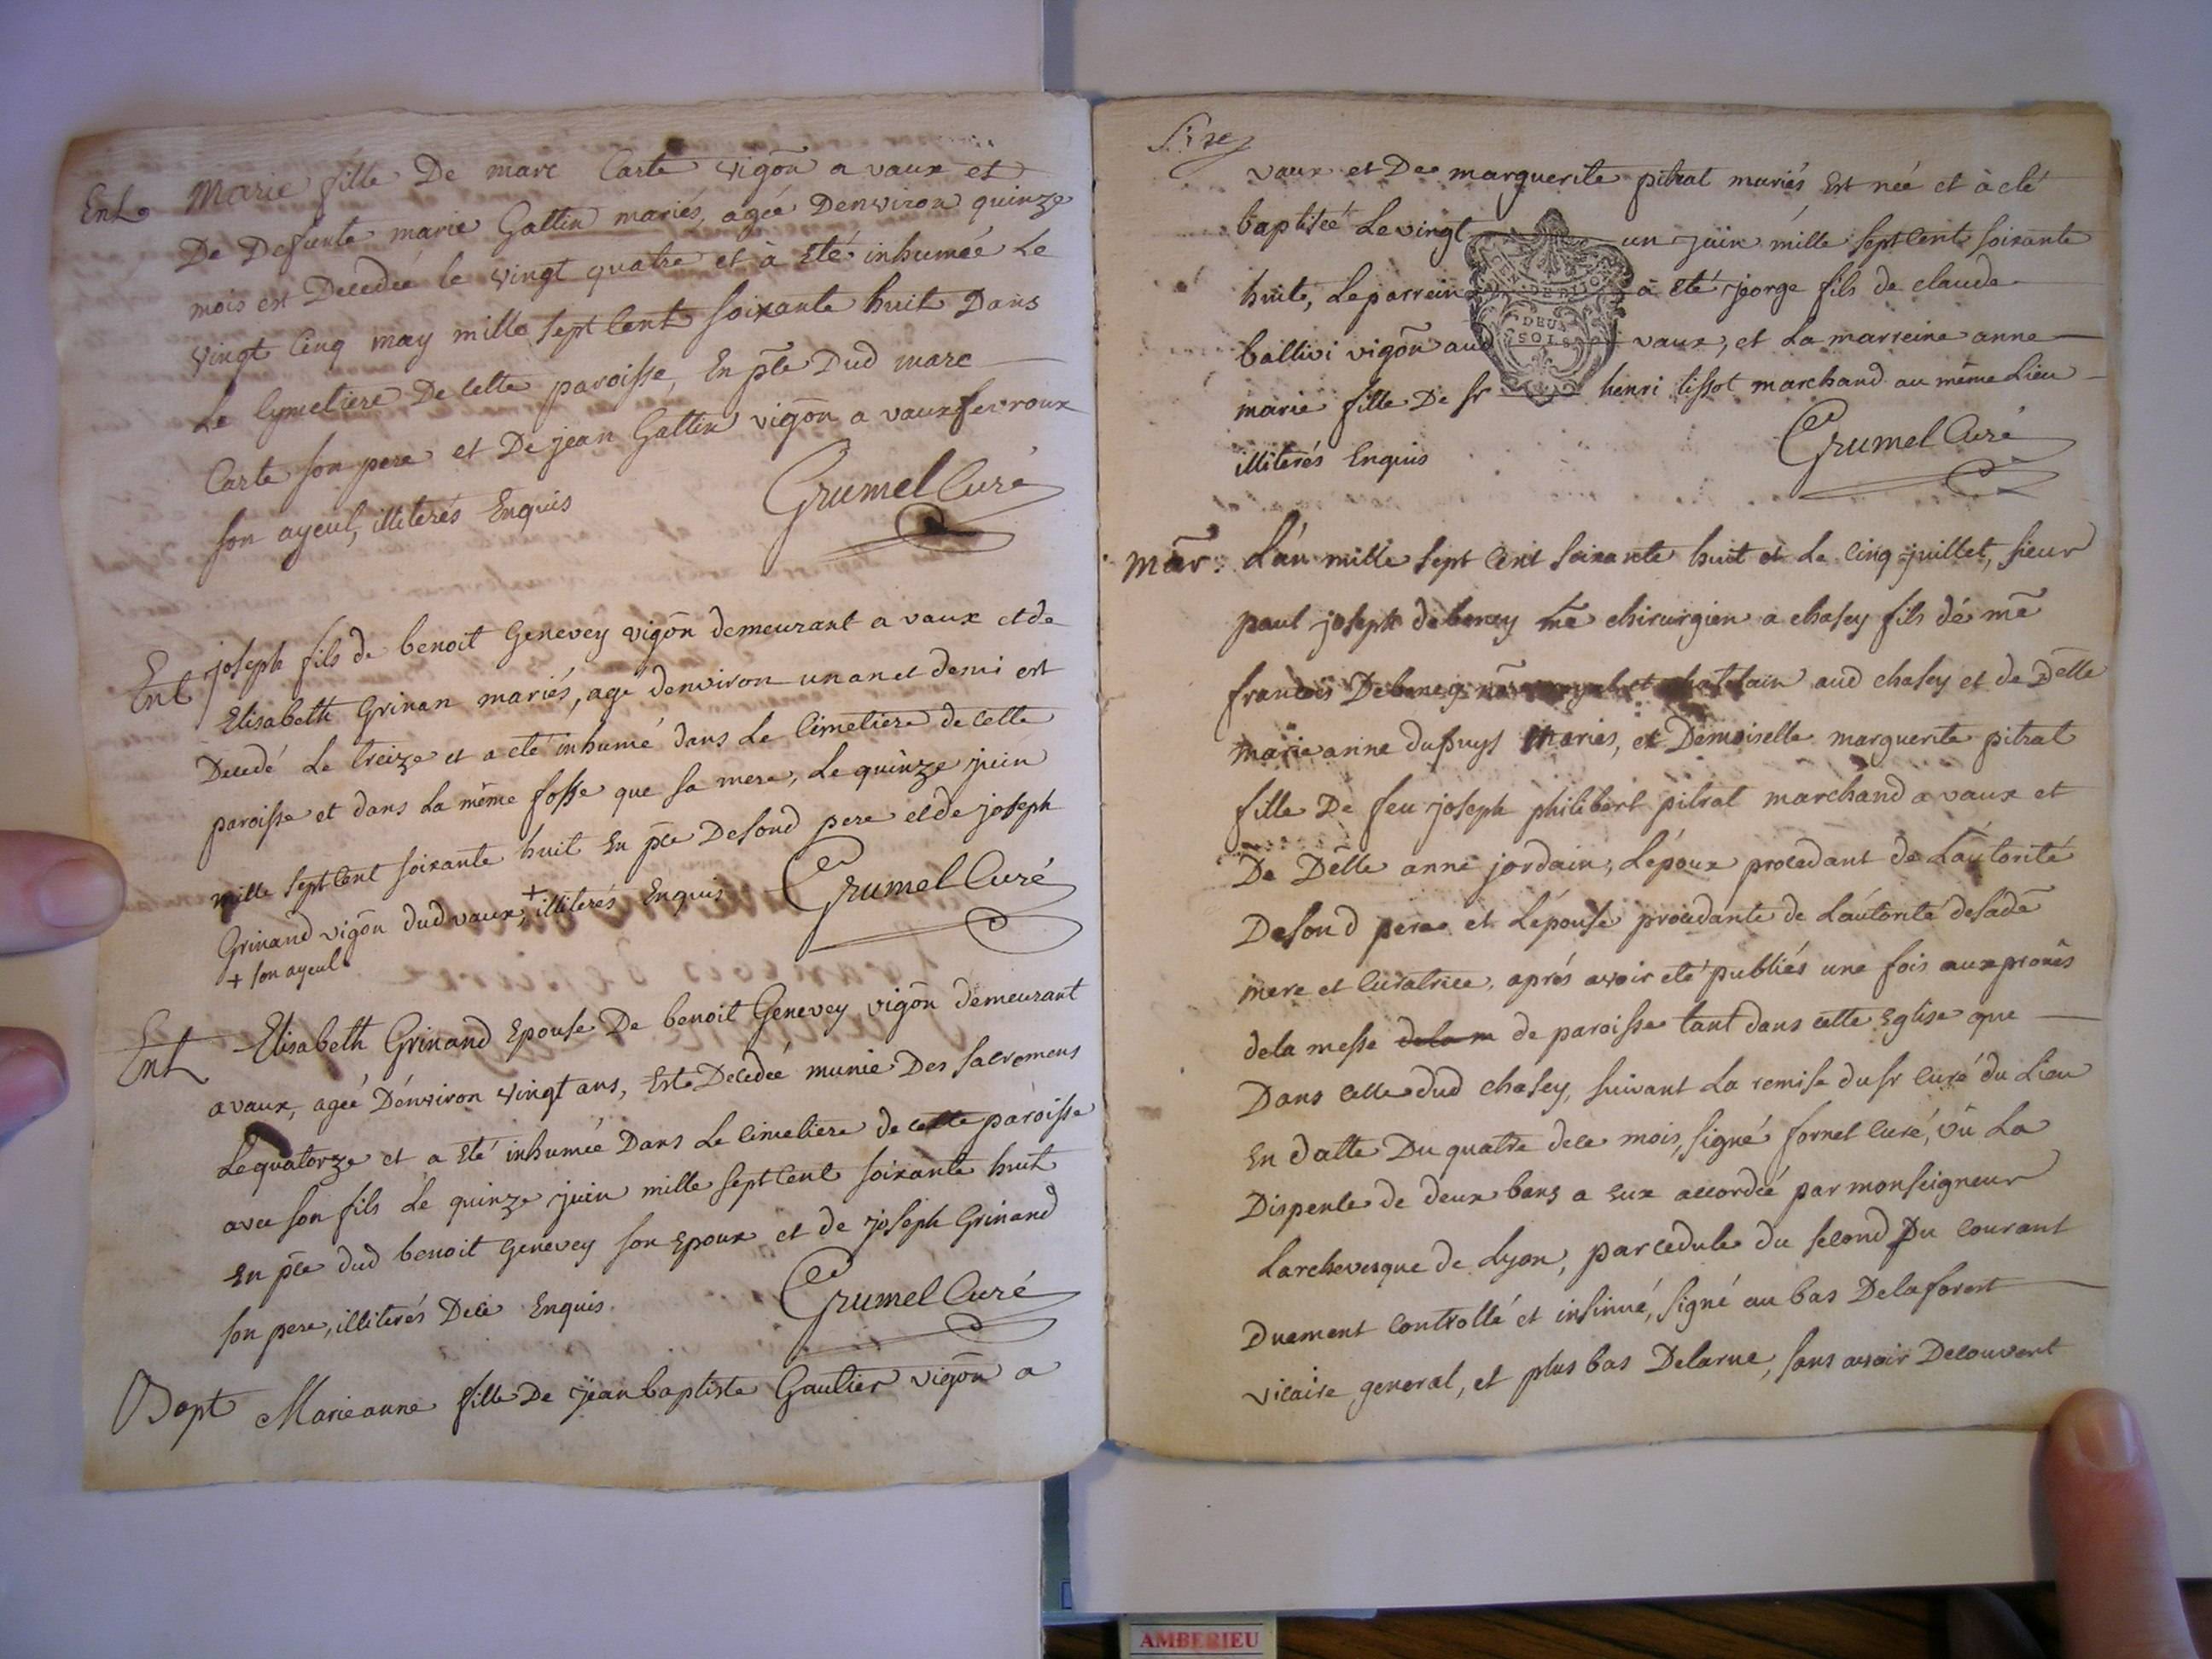 Ent
Marie fille De marc Carte vigōn a vaux et
De Defunte marie Gattin mariés, agée Denviron quinze
mois est Decedée le vingt quatre et à Eté inhumée Le
vingt Cinq may mille sept Cent soixante huit Dans
Le Cymetiere De Cette paroisse, En pce Dud marc
Carte son pere et De jean Gattin vigōn a vaux fevroux
son ayeul, illiterés Enquis
Grumel Curé
Ent
joseph fils de benoit Genevey vigōn demeurant a vaux et de
Elisabeth Grinan mariés, agé denviron un an et demi est
Decedé Le treize et a eté inhumé dans Le Cimetiere de cette
paroisse et dans La même fosse que sa mere, Le quinze juin
mille sept Cent soixante huit En pce Desond pere et de joseph
Grinand vigōn dud vaux, + illiterés Enquis
Grumel Curé
+ son ayeul
Ent
Elisabeth Grinand Epouse De benoit Genevey vigōn demeurant
a vaux, agée Dénviron vingt ans, Est Decedée munie Des Sacremens
Le quatorze et a Eté inhumée Dans Le Cimetiere de cette paroisse
avec son fils Le quinze juin mille sept Cent soixante huit
En pce dud benoit Genevey son Epoux et de joseph Grinand
son pere, illiterés Dece Enquis
Grumel Curé
Bapt
Marieanne fille De jean baptiste Gautier vigōn a
vaux et De marguerite pitrat mariés Est née et à eté
baptiseé Le vingt un juin mille sept Cent soixante
huit, Le parrein a Eté jeorge fils de claude
ballivi vigōn aud vaux, et La marreine anne
marie fille De sr henri tissot marchand au même Lieu
illiterés Enquis
Grumel Curé
GEN. DE DIJON
DEUX
SOLS
mār:
L'an mille sept Cent soixante huit et Le Cinq juillet, sieur
paul joseph debeney mē chirurgien a chasey fils dé mē
francois Debeney royal et chatelain aud chasey et de Delle
marie anne dupuys Mariés, et Demoiselle marguerite pitrat
fille De feu joseph philibert pitrat marchand a vaux et
De Delle anne jordain, Lépoux procedant de Láutorité
Desond pere et Lépouse procedante de Láutorité desade
mere et Curatrice, aprés avoir eté publiés une fois aux prônes
dela messe dela m de paroisse tant dans cette Eglise que
Dans celle dud chasey, suivant La remise du sr Curé du Lieu
En datte Du quatre de ce mois, signé fornet Curé, vû La
Dispense de deux bans a Eux accordée par monseigneur
Larchevesque de Lyon, par cedule du second Du courant
Duement Controllé et insinué, signé au bas Delaforest
vicaire general, et plus bas Delarue, sans avoir Decouvert
AMBERIEU